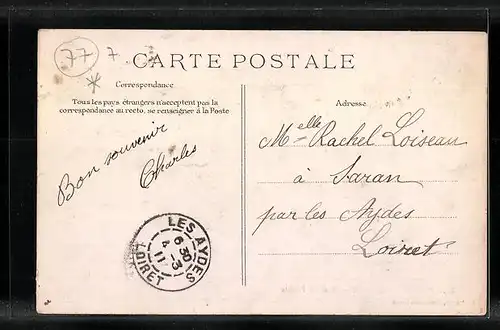 77 7
CARTE POSTALE
Correspondance
Tous les pays étrangers n'acceptent pas la
correspondance au recto, se renseigner à la Poste
Bon souvenir
Charles
Adresse
Melle Rachel Loiseau
à Saran
par les Aydes
Loiret
LES AYDES
6 30
4 -3
11
LOIRET